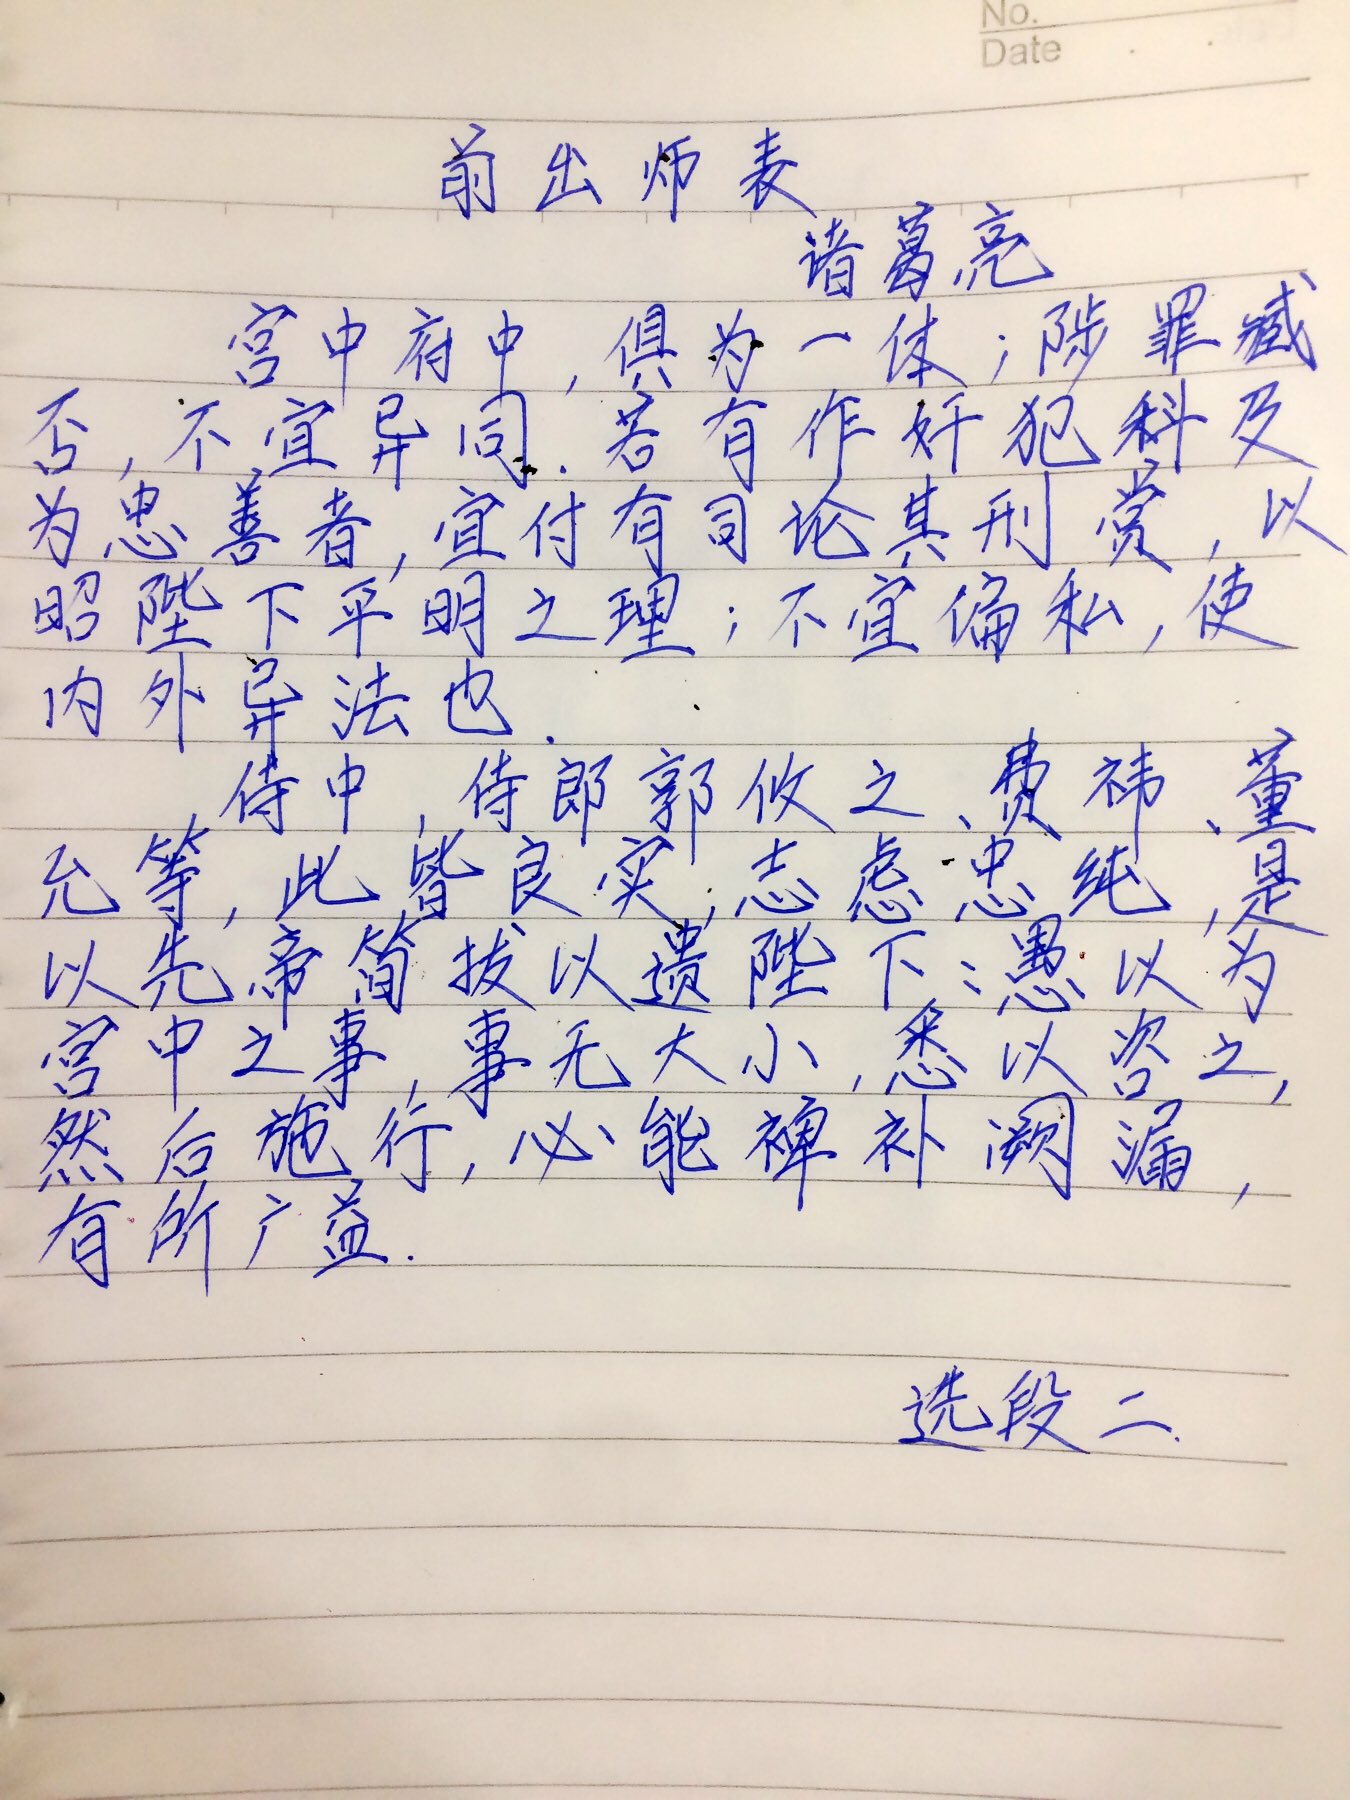 No.
Date
前出师表
诸葛亮
宫中府中,俱为一体;陟罪臧
否,不宜异同.若有作奸犯科及
为忠善者,宜付有司论其刑赏,以
昭陛下平明之理;不宜偏私,使
内外异法也.
侍中,侍郎郭攸之、费祎、董
允等,此皆良实,志虑忠纯,是
以先帝简拔以遗陛下:愚以为
宫中之事,事无大小,悉以咨之,
然后施行,必能裨补阙漏,
有所广益.
选段二.